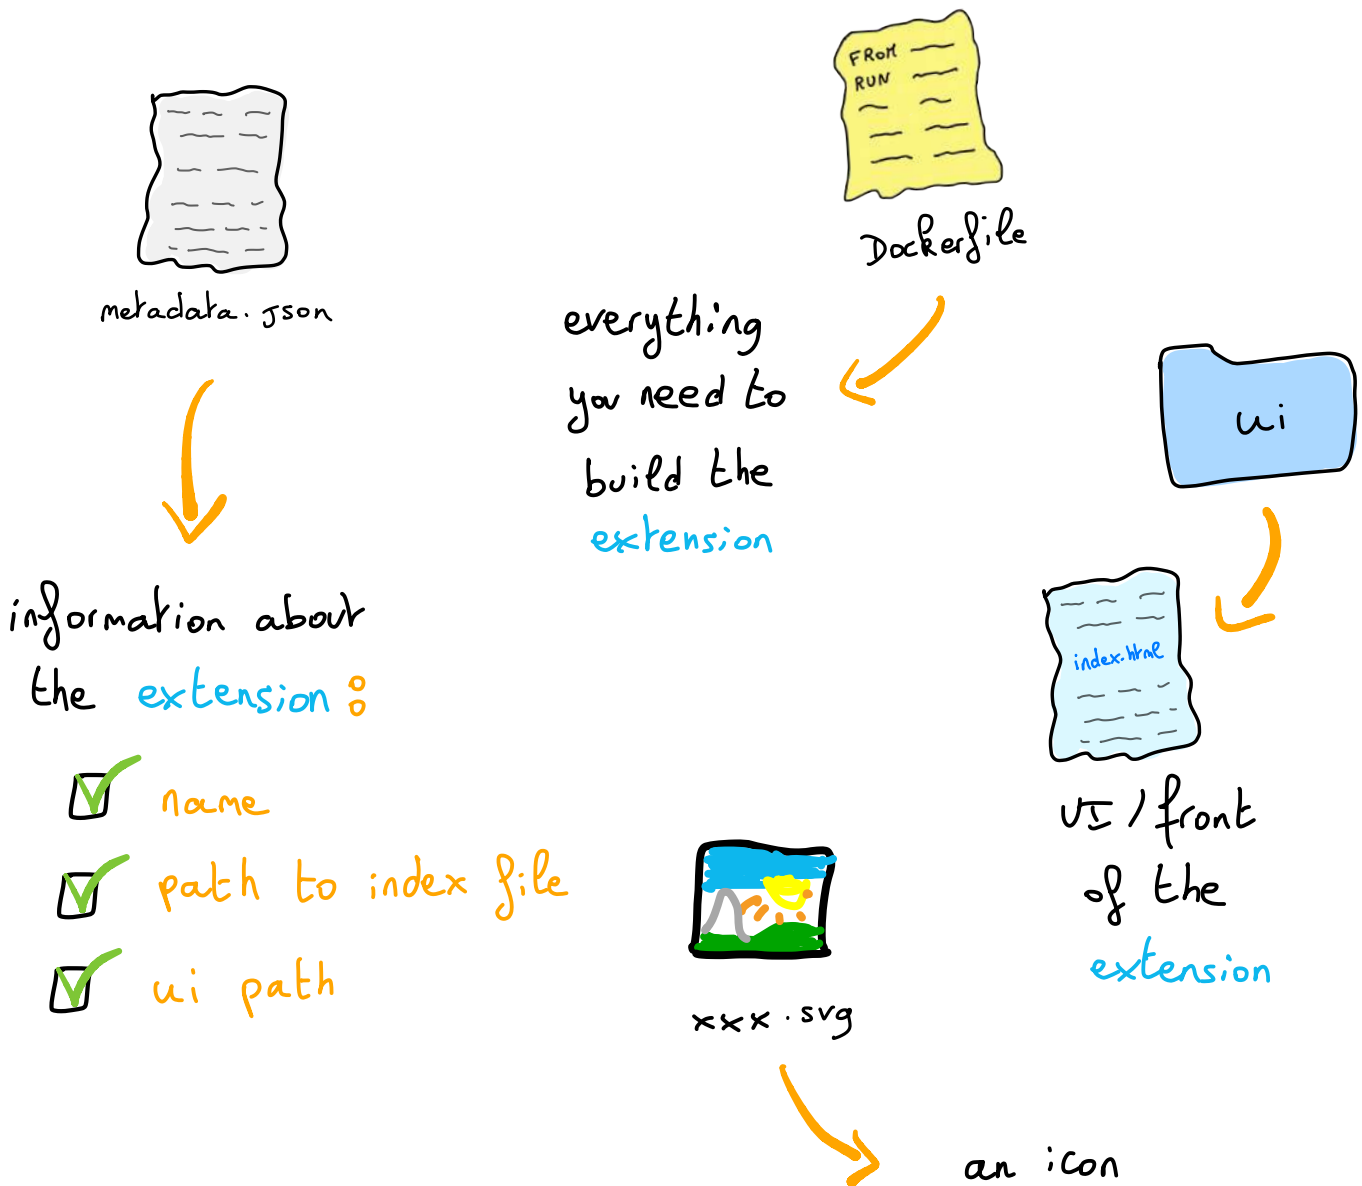 metadata.json
information about
the extension:
name
path to index file
ui path
FROM
RUN
Dockerfile
everything
you need to
build the
extension
ui
index.html
UI/front
of the
extension
xxx.svg
an icon